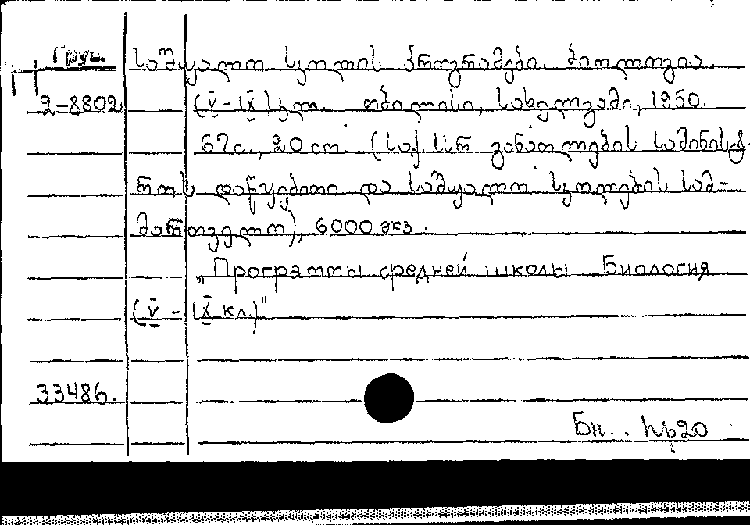 Груз. საშუალო სკოლის პროგრამები. ბიოლოგია
2-8802 (V-IX) კლ. თბილისი, სახელგამი, 1950.
67 с., 20 cm (საქ. სსრ განათლების სამინისტ-
როს დაწყებითი და საშუალო სკოლების სამ-
მართველო), 6000 экз.
„Программы средней школы Биология
(V - IX кл.)"
33486.
Бн.